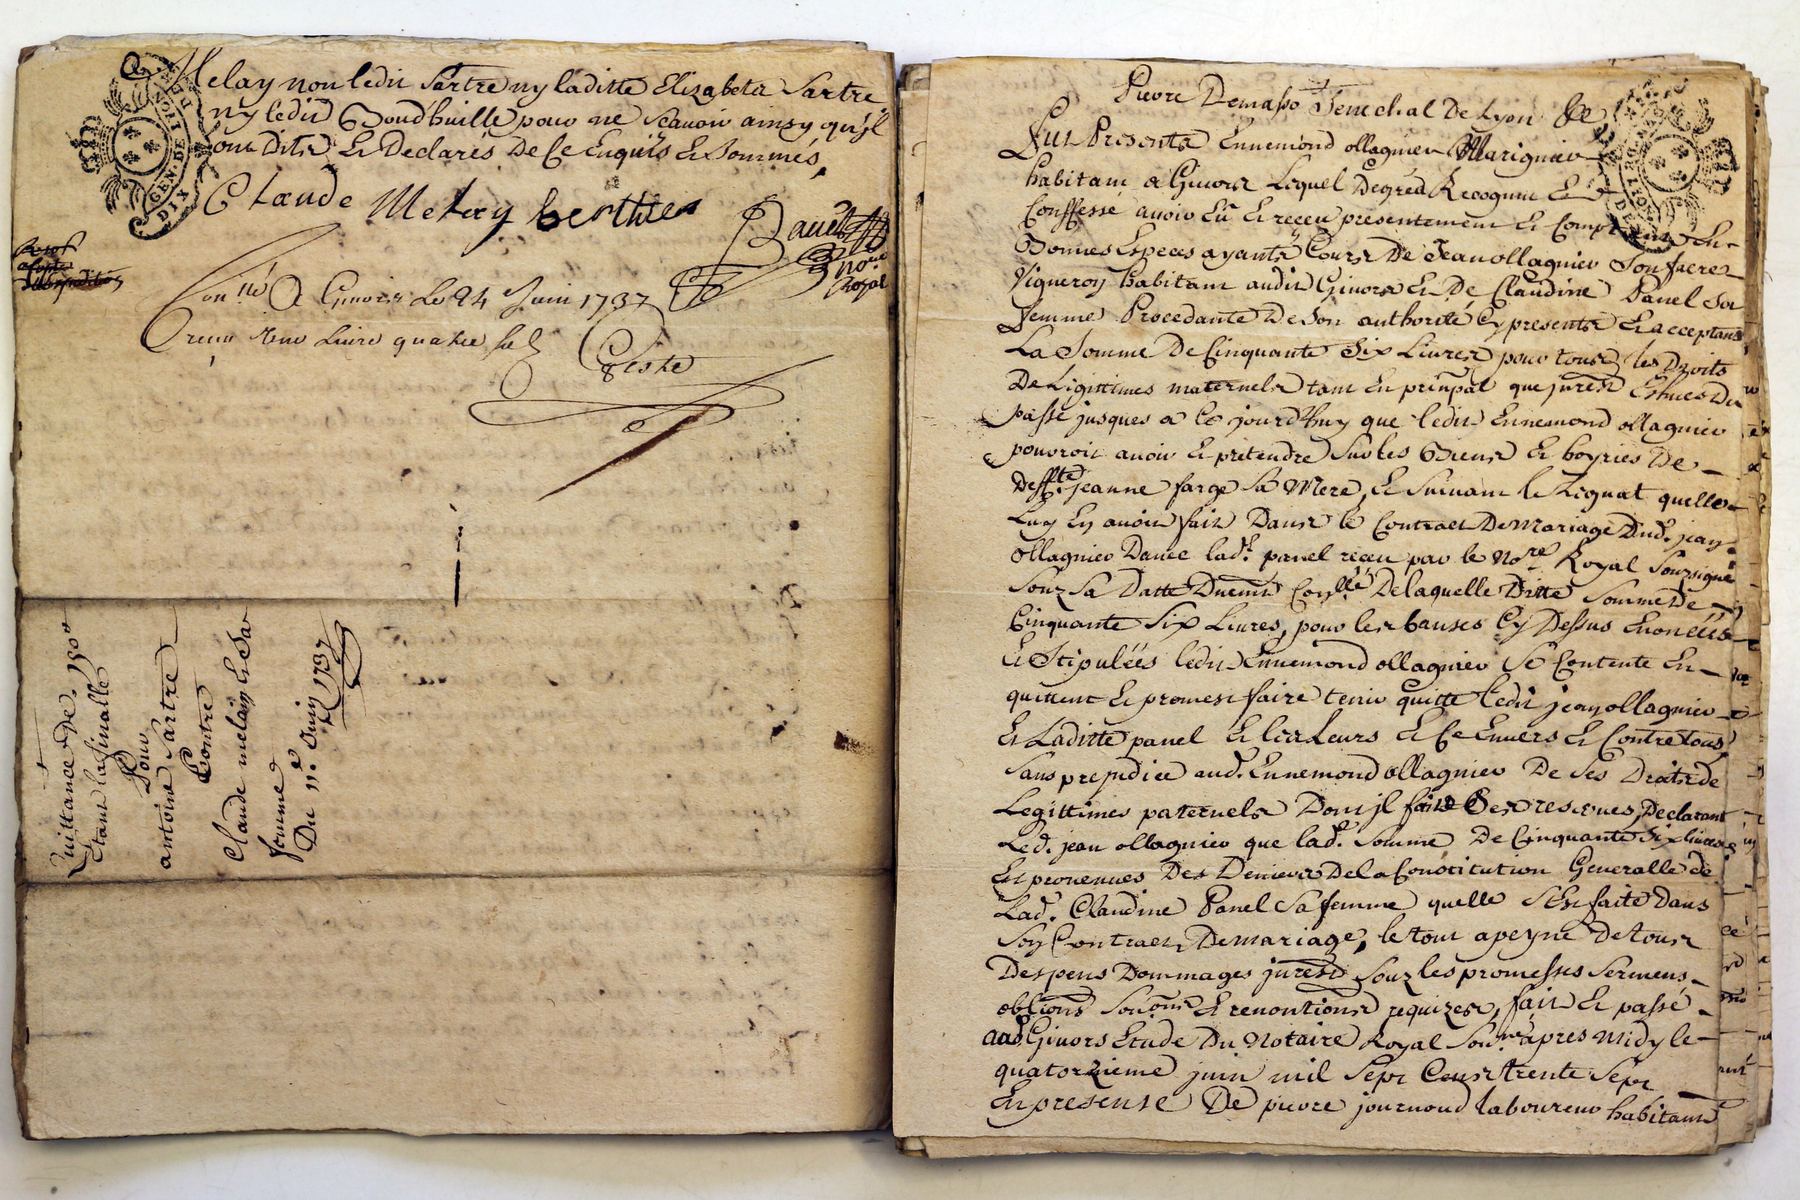 Melay non ledit Sartre ny laditte Elizabeth Sartre
ny ledit Bondhuille pour ne scavoir ainsy qu'jl
ont Dits Et Declarés De Ce Enquis Et Sommés
Claude Melay berthier
not.re Royal
GEN. DE LYON
DIX
Con.llé A Givors Le 24 Juin 1737
Receu une Livre quatre sols
Quittance De 150lt
Etant la finalle
Pour
antoine Sartre
Contre
Claude melay Et Sa
femme
Du 11e Juin 1737
Pierre Demasso Senechal De Lyon &c
Fut Presents Ennemond ollagnier Marignier
habitant a Givors Lequel Degréa Recognu Et
Confesse avoir Eû Et receu presentement Et Compt
Bonnes Especes ayants Cours De Jean ollagnier Son frere
Vigneron habitant audit Givors Et De Claudine Panel Sa
femme Procedante De Son authorité Cy presents Et acceptant
La Somme De Cinquante Six Livres pour tous les Droits
De Ligittimes maternels tant En prinpal que jnrest Eshues Du
passé jusques a Ce jourd'huy que ledit Ennemond ollagnier
pouvoit avoir Et pretendre Sur les Biens Et hoyries De
Deffte. jeanne farge Sa Mere, Et Suivant le Legat quelle
Luy En avoit fait Dans le Contract De Mariage Dud. jean
ollagnier Davec lad.e panel receu par le No.re Royal Soussigné
Souz Sa Datte Duemt Con.llé De laquelle Ditte Somme De
Cinquante Six Livres, pour les Causes Cy Dessus Enoncées
Et Stipulées ledit Ennemond ollagnier Se Contente En
quittent Et promest faire tenir quitte ledit jean ollagnier
Et Laditte panel Et les Leurs Et Ce Envers Et Contre tous
Sans prejudice aud. Ennemond ollagnier De Ses Droits de
Legittimes paternels Dont jl fait Ses reserves, Declarant
Led. jean ollagnier que lad.e Somme De Cinquante Six livres
Est provenues Des Deniers De la Constitution Generalle de
Lad.e Claudine Panel Sa femme quelle S'Est faite Dans
Son Contract De mariage, le tout a peyne De tous
Despens Dommages jnrest Souz les promesses Sermens
oblions Soûons Et renontions requizes, fait Et passé
aud. Givors Etude Du Notaire Royal Sou.né apres midy le
quatorzieme juin mil Sept Cens trente Sept
En presense De pierre journoud laboureur habitant